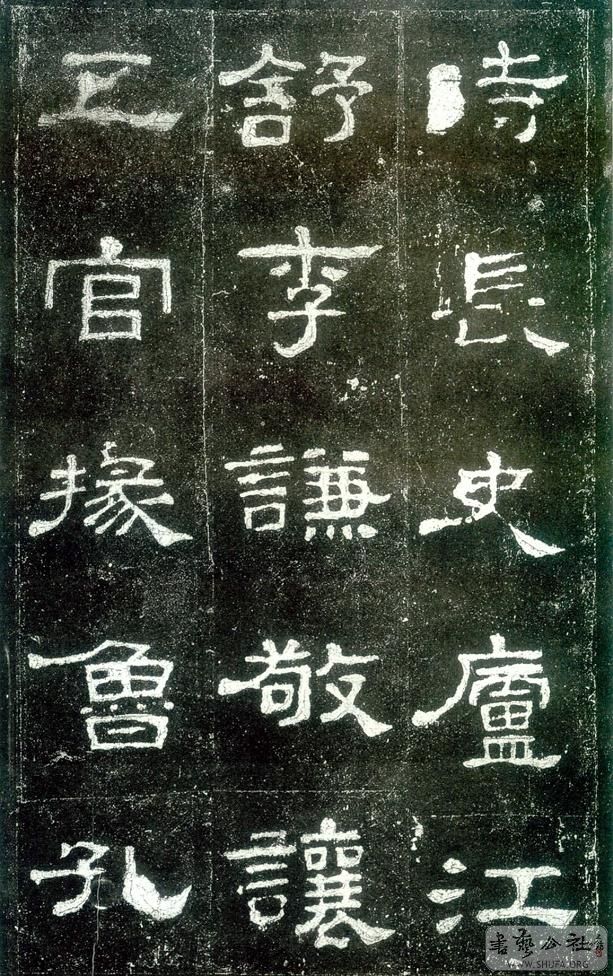 時長史廬江
舒李謙敬讓
五官掾魯孔
書藝公社
WWW.SHUFA.ORG